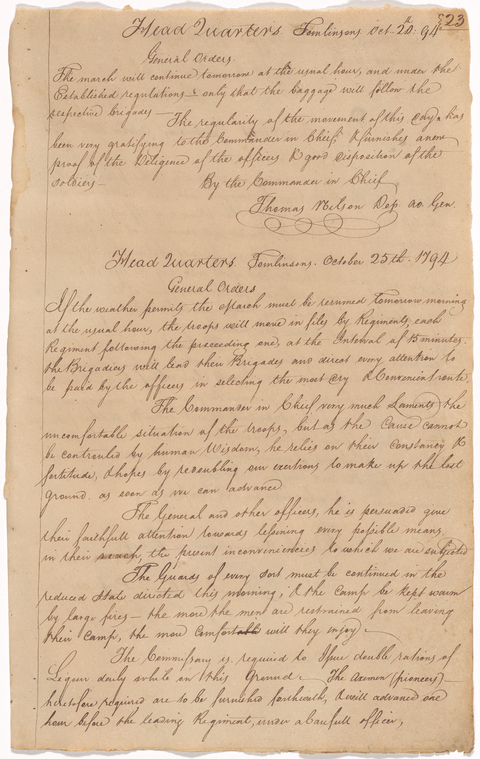 23
Head Quarters Tomlinsons Oct. 24. 94
General Orders.
The march will continue tomorrow at the usual hour, and under the
Established regulations & only that the baggage will follow the
respective brigades —
The regularity of the movement of this day has
been very gratifying to the Commander in Chief, & furnishes a new
proof of the Deligence of the officers & good disposition of the
soldiers —
By the Commander in Chief
Thomas Nelson Dep. ad. Gen.
Head Quarters. Tomlinsons. October 25th. 1794
General Orders
If the weather permits the March must be resumed tomorrow morning
at the usual hour, the troops will move in files by Regiments, each
Regiment following the preceeding one, at the Interval of 15 minutes.
the Brigadiers will lead their Brigades and direct every attention to
be paid by the officers in selecting the most dry & Convenient route,
The Commander in Chief very much Laments the
uncomfortable situation of the troops, but as the Cause cannot
be controuled by human Wisdom, he relies on their Constancy &
fortitude, & hopes by redoubling our exertions to make up the lost
ground. as soon as we can advance
The General and other officers, he is persuaded give
their faithfull attention towards lessening every possible means
in their reach, the present inconveniences to which we are subjected
The Guards of every sort must be continued in the
reduced state directed this morning, & the camp be kept warm
by large fires — the more the men are restrained from leaving
their Camp, the more comfort will they enjoy —
The Commissary is required to Issue double rations of
Lequor daily while on this Ground. The Axemen (pioneers) —
heretofore required are to be furnished forthwith, & will advance one
hour before the leading Regiment, under a Carefull officer,